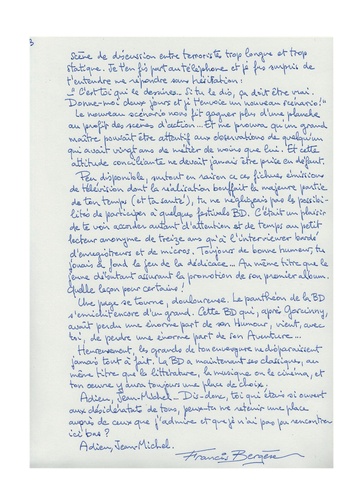 3
Scène de discussion entre terroristes trop longue et trop
statique. Je t'en fis part au téléphone et je fus surpris de
t'entendre me répondre sans hésitation :
- "C'est toi qui le dessines... Si tu le dis, ça doit être vrai.
Donne-moi deux jours et je t'envoie un nouveau scénario !"
Le nouveau scénario nous fit gagner plus d'une planche
au profit des scènes d'action... Et me prouva qu'un grand
maître pouvait être attentif aux observations de quelqu'un
qui avait vingt ans de métier de moins que lui. Et cette
attitude conciliante ne devait jamais être prise en défaut.
Peu disponible, surtout en raison de ces fichues émissions
de télévision dont la réalisation bouffait la majeure partie
de ton temps (et ta santé), tu ne négligeais pas la possibi-
lité de participer à quelques festivals BD. C'était un plaisir
de te voir accorder autant d'attention et de temps au petit
lecteur anonyme de treize ans qu'à l'interviewer bardé
d'enregistreurs et de micros. Toujours de bonne humeur, tu
jouais à fond le jeu de la dédicace... Au même titre que le
jeune débutant assurant la promotion de son premier album.
Quelle leçon pour certains !
Une page se tourne, douloureuse. Le panthéon de la BD
s'enrichit encore d'un grand. Cette BD qui, après Goscinny,
avait perdu une énorme part de son Humour, vient, avec
toi, de perdre une énorme part de son Aventure...
Heureusement, les grands de ton envergure ne disparaissent
jamais tout à fait. La BD a maintenant ses classiques, au
même titre que la littérature, la musique ou le cinéma, et
ton œuvre y aura toujours une place de choix.
Adieu, Jean-Michel... Dis-donc, toi qui étais si ouvert
aux désidératas de tous, peux-tu me retenir une place
auprès de ceux que j'admire et que je n'ai pas pu rencontrer
ici bas ?
Adieu, Jean-Michel.
Francis Bergèse